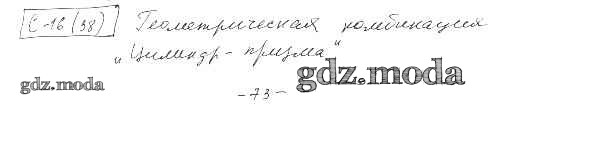 С-16 (38) Геометрическая комбинация
„Цилиндр - призма"
gdz.moda
gdz.moda
- 73 -